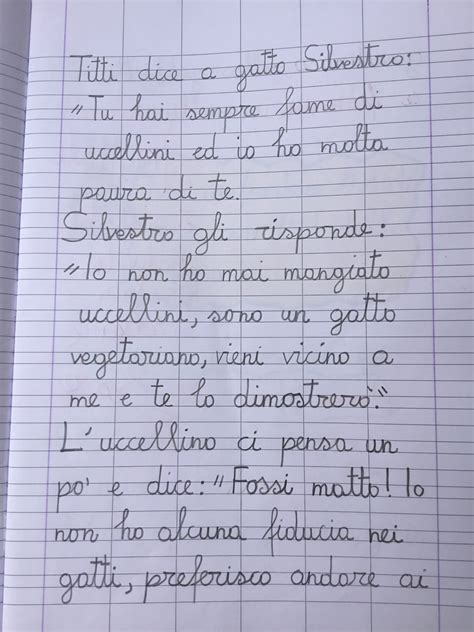 Titti dice a gatto Silvestro:
"Tu hai sempre fame di
uccellini ed io ho molta
paura di te.
Silvestro gli risponde:
"Io non ho mai mangiato
uccellini, sono un gatto
vegetariano, vieni vicino a
me e te lo dimostrerò."
L'uccellino ci pensa un
po' e dice: "Fossi matto! Io
non ho alcuna fiducia nei
gatti, preferisco andare ai